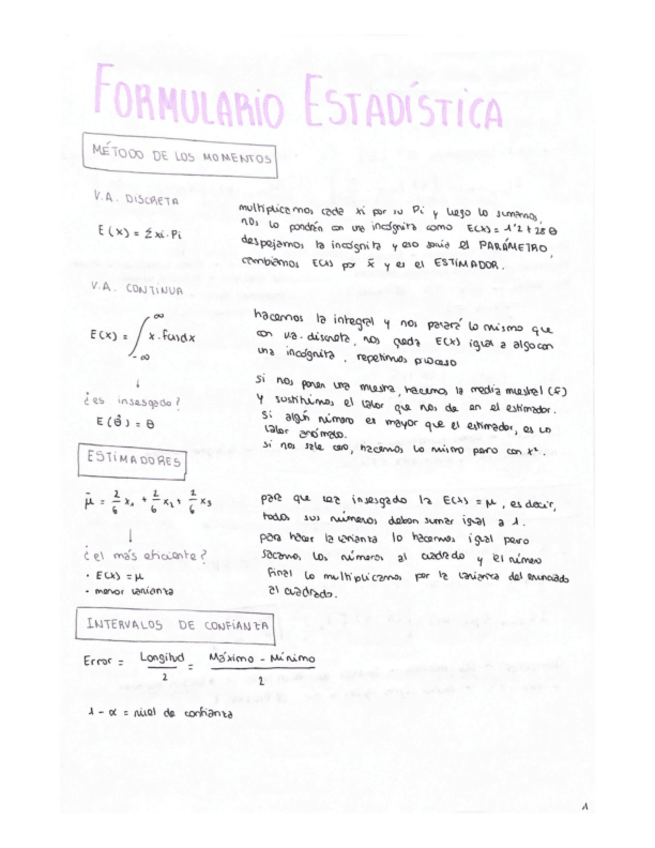 FORMULARIO ESTADÍSTICA
MÉTODO DE LOS MOMENTOS
V.A. DISCRETA
E(x) = Σ xi · Pi
multiplicamos cada xi por su Pi y luego lo sumamos,
nos lo pondrán con una incógnita como E(x) = 1'2 + 28 θ
despejamos la incógnita y eso sería el PARÁMETRO,
cambiamos E(x) por x̄ y es el ESTIMADOR.
V.A. CONTINUA
E(x) = ∫_{-∞}^{∞} x · f(x)dx
hacemos la integral y nos pasará lo mismo que
con v.a. discreta, nos queda E(x) igual a algo con
una incógnita, repetimos proceso
↓
¿es insesgado?
E(θ̂) = θ
si nos ponen una muestra, hacemos la media muestral (x̄)
y sustituimos el valor que nos de en el estimador.
Si algún número es mayor que el estimador, es un
valor anómalo.
si nos sale cero, hacemos lo mismo pero con x².
ESTIMADORES
μ̂ = 2/6 x₁ + 2/6 x₂ + 2/6 x₃
↓
¿el más eficiente?
· E(x) = μ
· menor varianza
para que sea insesgado la E(x) = μ, es decir,
todos sus números deban sumar igual a 1.
para hacer la varianza lo hacemos igual pero
sacamos los números al cuadrado y el número
final lo multiplicamos por la varianza del enunciado
al cuadrado.
INTERVALOS DE CONFIANZA
Error = Longitud / 2 = Máximo - Mínimo / 2
1 - α = nivel de confianza
1